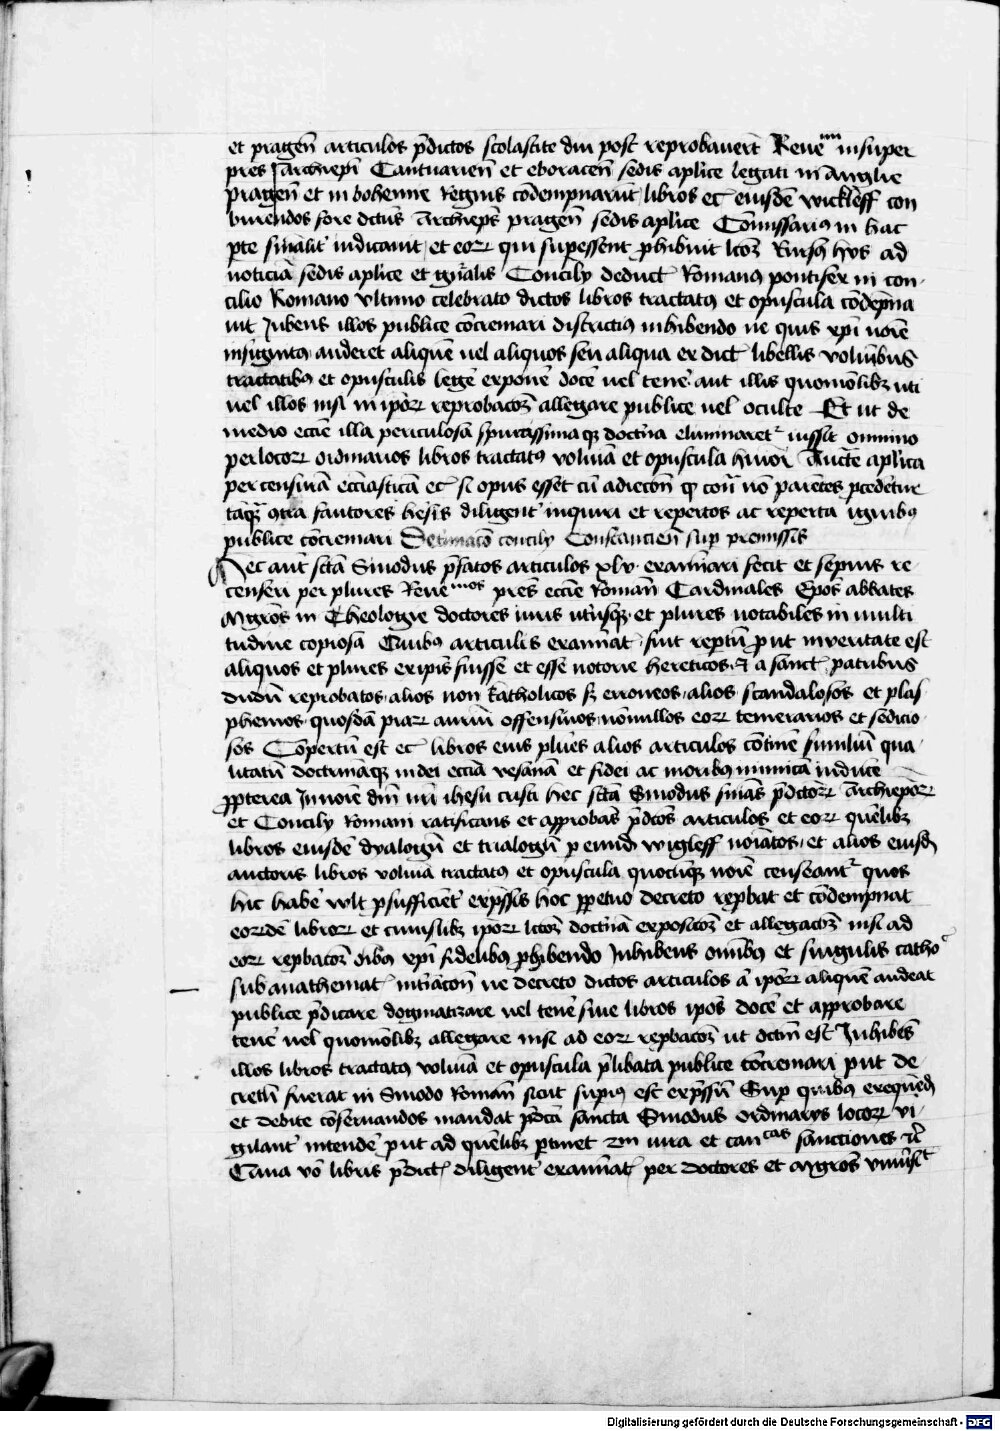 et pragen̄ articulos p̄dictos scolastice diu post reprobaverūt Revemi insuper
pres̄ Archiepī Cantuarien̄ et eboracen̄ sedis aplīce legati in Anglie
pragen̄ et in bohemie Regnis cōdempnarūt libros ec̄ eiusdē wickleff con
burendos fore dictus Archiepūs pragen̄ sedis aplīce Cōmissarius in hac
pte sinalit̄ iudicavit et eorꝝ qui supessent phibuit lcōꝫ Rursꝫ hos ad
noticiā sedis aplīce et gn̄alis Concilÿ deduct̄ Romanus pontifex in con-
cilio Romano ultimo celebrato dictos libros tractatꝰ et opuscula cōdepna
uit Iubens illos publice cōcremari districtius inhibendo ne quis xpī noīe
insignitus auderet aliquē vel aliquos seu aliqua ex dict̄ libellis volūībus
tractatibus et opusculis lege͛ expone͛ doce͛ vel tene͛ aut illis quomōlibꝫ uti
vel illos nisi in ipōꝝ reprobacōꝫ allegare publice vel occulte Et ut de
medio eccīe illa periculosa spurcissimaqꝫ doctrīa eliminaret᷑ iussit omnino
per locorꝝ ordinarios libros tractatus volumīa et opuscula hmōi Auctē aplīca
per censurā eccīasticā ec̄ si opus esset cū adiecōn̄ ꝙ cont̄ᵃ nō parētes pcedet᷑ur
tāqꝫ 9tra fautores hes̄is diligent̄ inquiri et repertos ac reperta ignibus
publice cōcremari Determinacō concily Constancien̄ sup premissis
Hec aut̄ sctā Sinodus p̄fatos articulos xlv examīari fecit et sepius re
censeri per plures Reuemos pres̄ eccīe Romān Cardinales Epōs abbates
Mgrōs in Theologie doctores iuris utriusqꝫ et plures notabiles in multi
tudine copiosa Quibus articulis examīat̄ fuit reptū prout in veritate est
aliquos et plures ex ipīs fuisse et esse notorie hereticos et a sanct̄ patribus
dudū reprobatos alios non katholicos sꝫ erroneos alios scandalosos et plas-
phemos quosdā piarꝝ auriū offensivos nōnullos eorꝝ temerarios et sedicio
sos Compertū est ec̄ libros eius plures alios articulos cōtine͛ similiū qua-
litatū doctrinaqꝫ in dei eccīa vesanā et fidei ac moribus inimicā induce͛
propterea In noīe dn̄i nr̄i ihesu cristi hec sctā Sinodus sn̄ias p̄dictorꝝ Archiepōrꝝ
et Concily Romani ratificans et approbās p̄dcōs articulos et eorꝝ quēlibꝫ
libros eiusdē dyalogū et trialogū p eund wigleff noīatos et alios eiusd
auctoris libros volumīa tractatꝰ et opuscula quocūqꝫ noīe censeant᷑ quos
hic habe͛ vlt̄ p sufficiet͛ exp̄ssis hoc ppetuo decreto repbat et cōdempnat
eorūdē librorꝝ et cuiuslibꝫ ipōrꝝ lcōꝫ doctrīā exposicōꝫ et allegacōꝫ nisi ad
eorꝝ repbacōꝫ oībus xpī fidelibus phibendo Inhibens omībus et singulis catho᷑
sub anathemat̄ intīacōn̄ ne decreto dictos articulos a͛ ipōrꝝ aliquē audeat
publice p̄dicare dogmatizare vel tene͛ sive libros ipōs doce͛ et approbare
tene͛ vel quomōlibꝫ allegare nisi ad eorꝝ repbacōꝫ ut dctm̄ est Iuhibēs
illos libros tractatus volumīa et opuscula p̄libata publice cōcremari put de-
cretū fuerat in Sinodo Romān̄ sicut supius est exp̄ssū Sup quibus exequēd
et debite cōservandos mandat p̄dcā sancta Sinodus ordinarÿs locorꝝ vi-
gilant͛ intende͛ put ad quēlibꝫ ptinet 2m iura et cancas sanctiones etc̄
Qāia vō libris p̄dict̄ diligent͛ examīat̄ per doctores et Mgrōs univsit̄
Digitalisierung gefördert durch die Deutsche Forschungsgemeinschaft - DFG